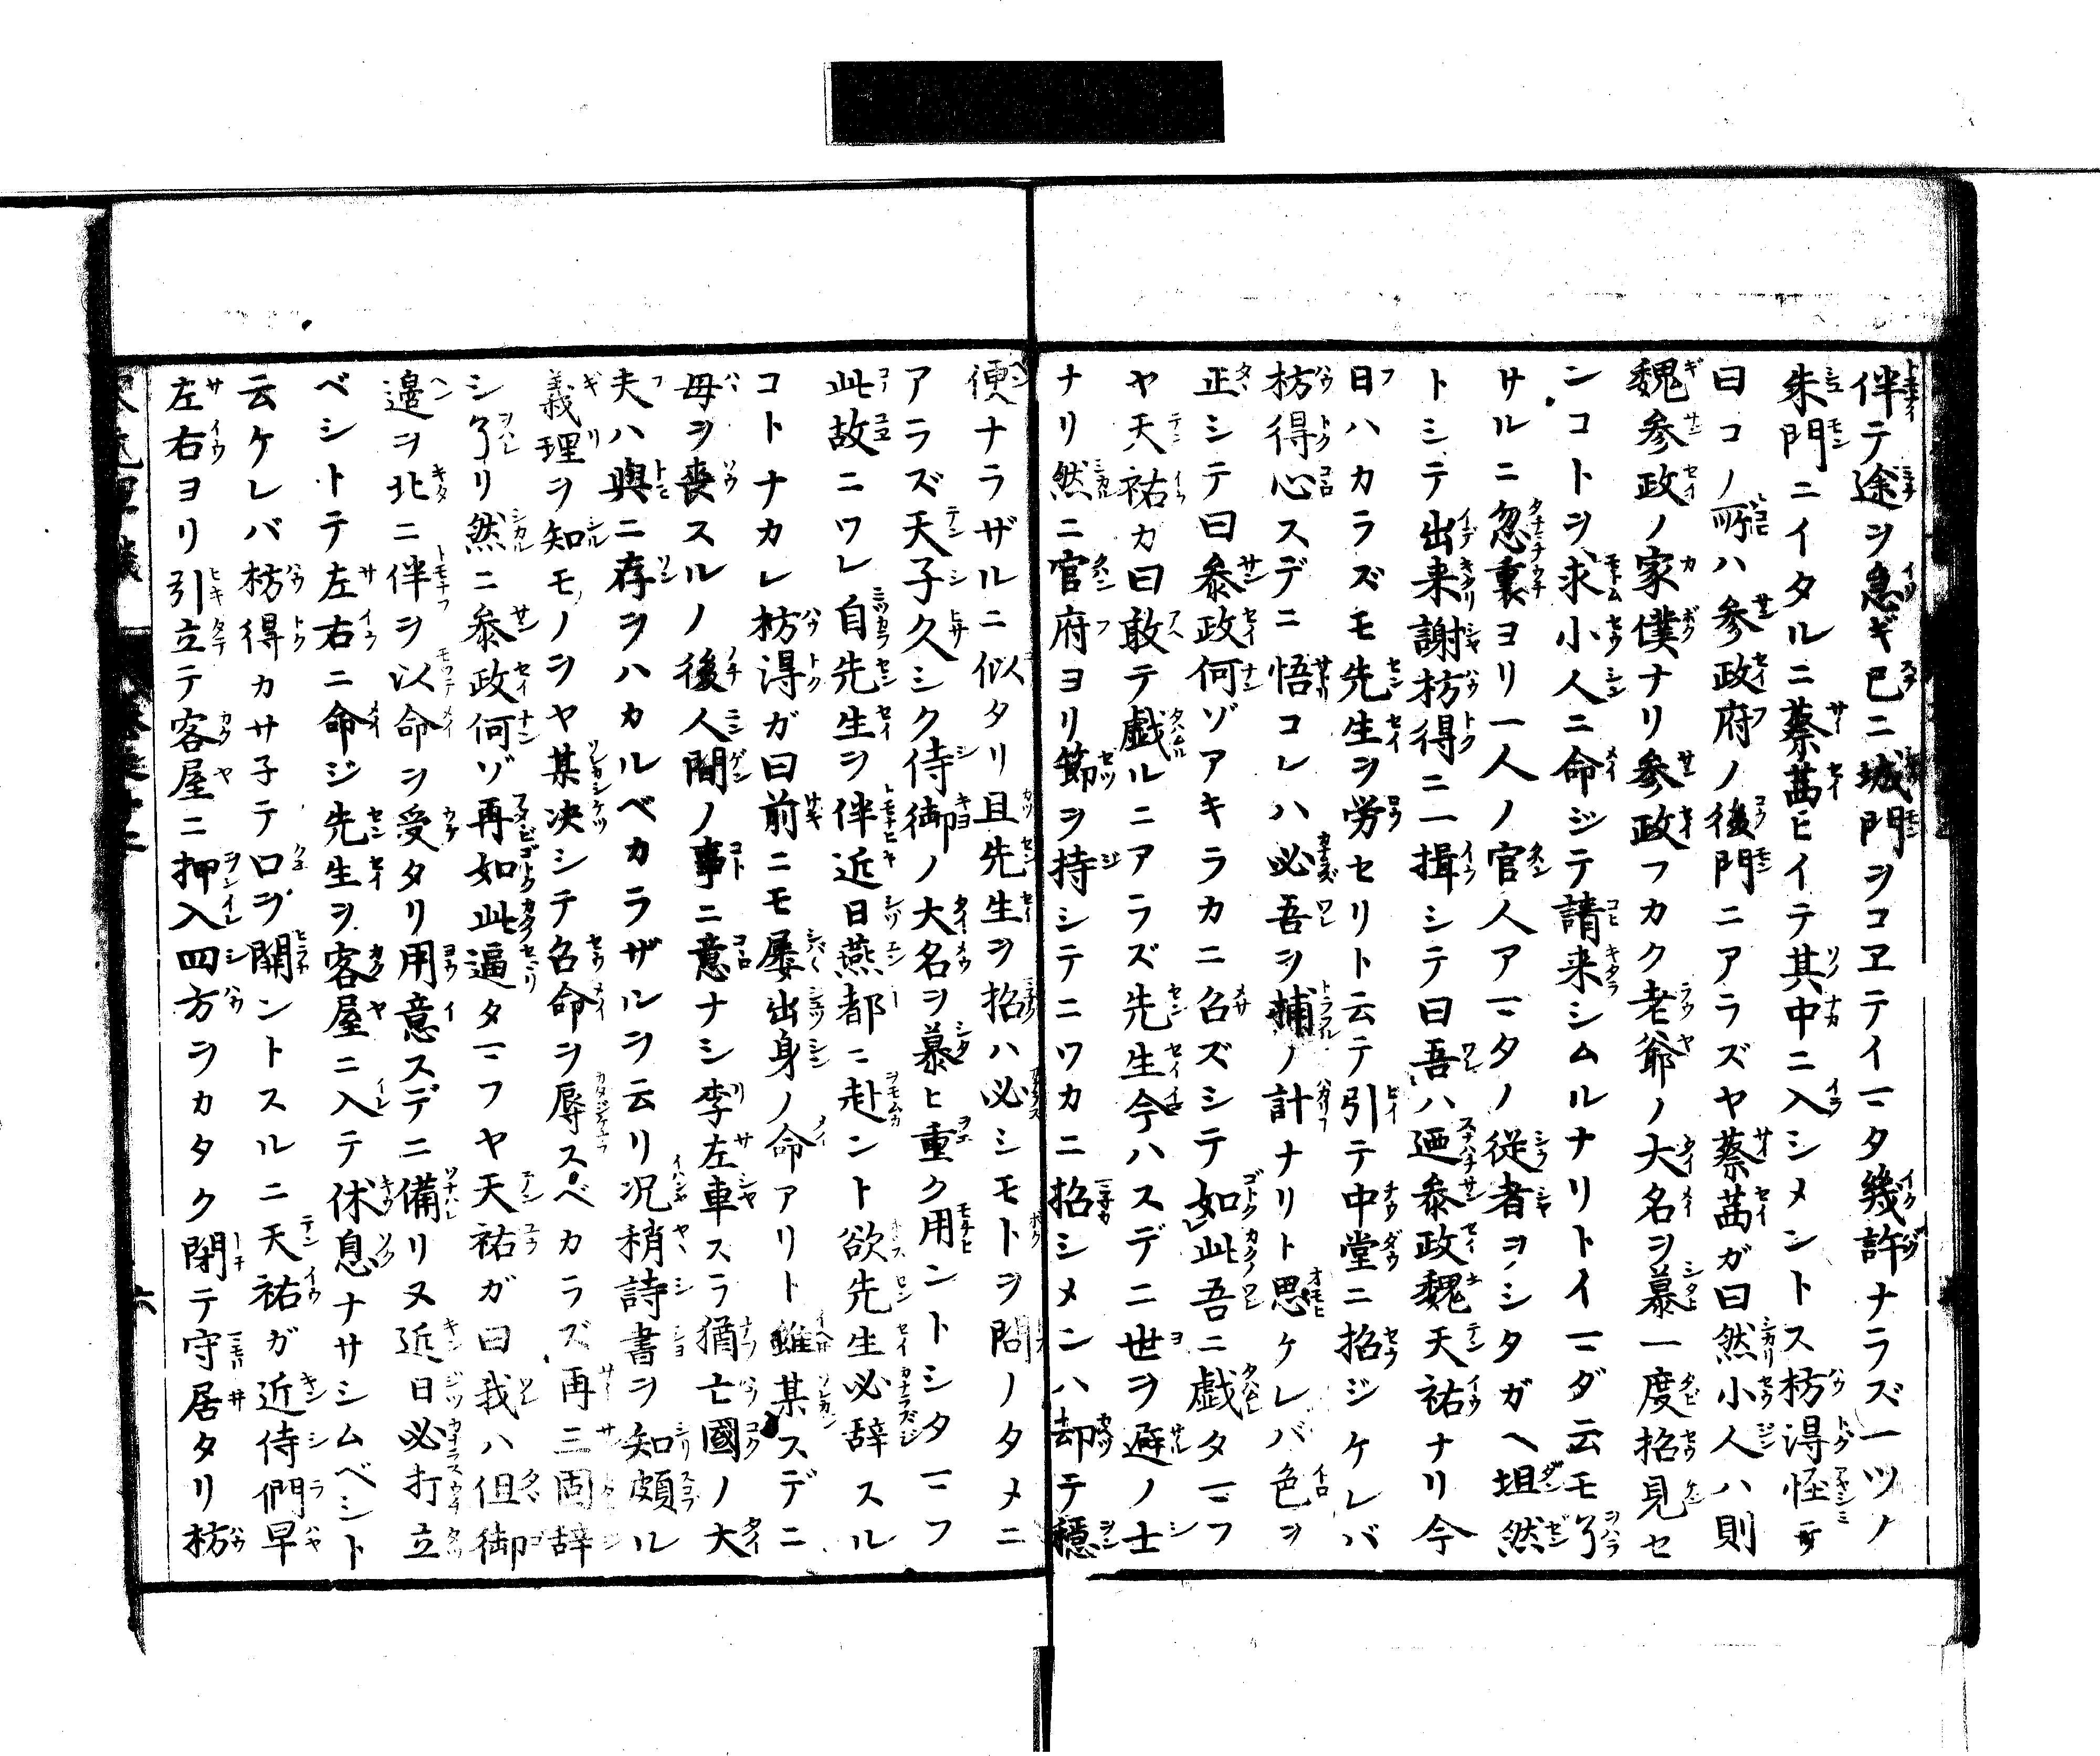 伴テ途ヲ急ギ已ニ城門ヲコヱテイマタ幾許ナラズ一ツノ
朱門ニイタルニ蔡茜ヒイテ其中ニ入シメントス枋得怪テ
曰コノ所ハ参政府ノ後門ニアラズヤ蔡茜ガ曰然小人ハ則
魏参政ノ家僕ナリ参政フカク老爺ノ大名ヲ慕一度招見セ
ンコトヲ求小人ニ命ジテ請来シムルナリトイマダ云モ了
サルニ忽裏ヨリ一人ノ官人アマタノ従者ヲシタガヘ坦然
トシテ出来謝枋得ニ一揖シテ曰吾ハ廼叅政魏天祐ナリ今
日ハカラズモ先生ヲ労セリト云テ引テ中堂ニ招ジケレバ
枋得心スデニ悟コレハ必吾ヲ捕ノ計ナリト思ケレバ色ヲ
正シテ曰叅政何ゾアキラカニ召ズシテ如此吾ニ戯タマフ
ヤ天祐カ曰敢テ戯ルニアラズ先生今ハスデニ世ヲ避ノ士
ナリ然ニ官府ヨリ節ヲ持シテニワカニ招シメンハ却テ穏
便ナラザルニ似タリ且先生ヲ招ハ必シモトヲ問ノタメニ
アラズ天子久シク侍御ノ大名ヲ慕ヒ重ク用ントシタマフ
此故ニワレ自先生ヲ伴近日燕都ニ赴ント欲先生必辞スル
コトナカレ枋得ガ曰前ニモ屡出身ノ命アリト雖某スデニ
母ヲ喪スルノ後人間ノ事ニ意ナシ李左車スラ猶亡國ノ大
夫ハ與ニ存ヲハカルベカラザルヲ云リ况稍詩書ヲ知頗ル
義理ヲ知モノヲヤ某决シテ召命ヲ辱スベカラズ再三固辞
シ了リ然ニ叅政何ゾ再如此逼タマフヤ天祐ガ曰我ハ但御
邉ヲ北ニ伴ヲ以命ヲ受タリ用意スデニ備リヌ近日必打立
ベシトテ左右ニ命ジ先生ヲ客屋ニ入テ休息ナサシムベシト
云ケレバ枋得カサ子テ口ヲ開ントスルニ天祐ガ近侍們早
左右ヨリ引立テ客屋ニ押入四方ヲカタク閉テ守居タリ枋
六